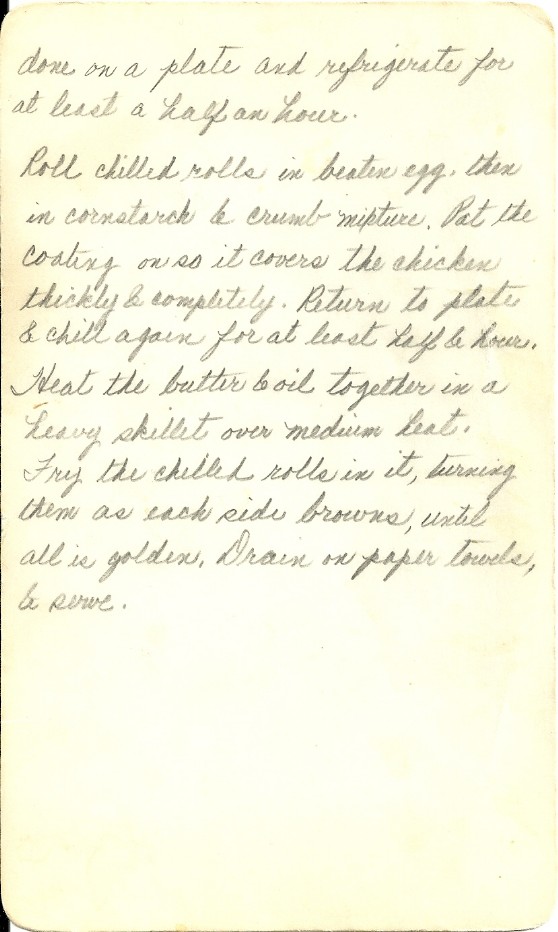 done on a plate and refrigerate for
at least a half an hour.
Roll chilled rolls in beaten egg. then
in cornstarch & crumb mixture. Pat the
coating on so it covers the chicken
thickly & completely. Return to plate
& chill again for at least half & hour.
Heat the butter & oil together in a
heavy skillet over medium heat.
Fry the chilled rolls in it, turning
them as each side browns, until
all is golden. Drain on paper towels,
& serve.